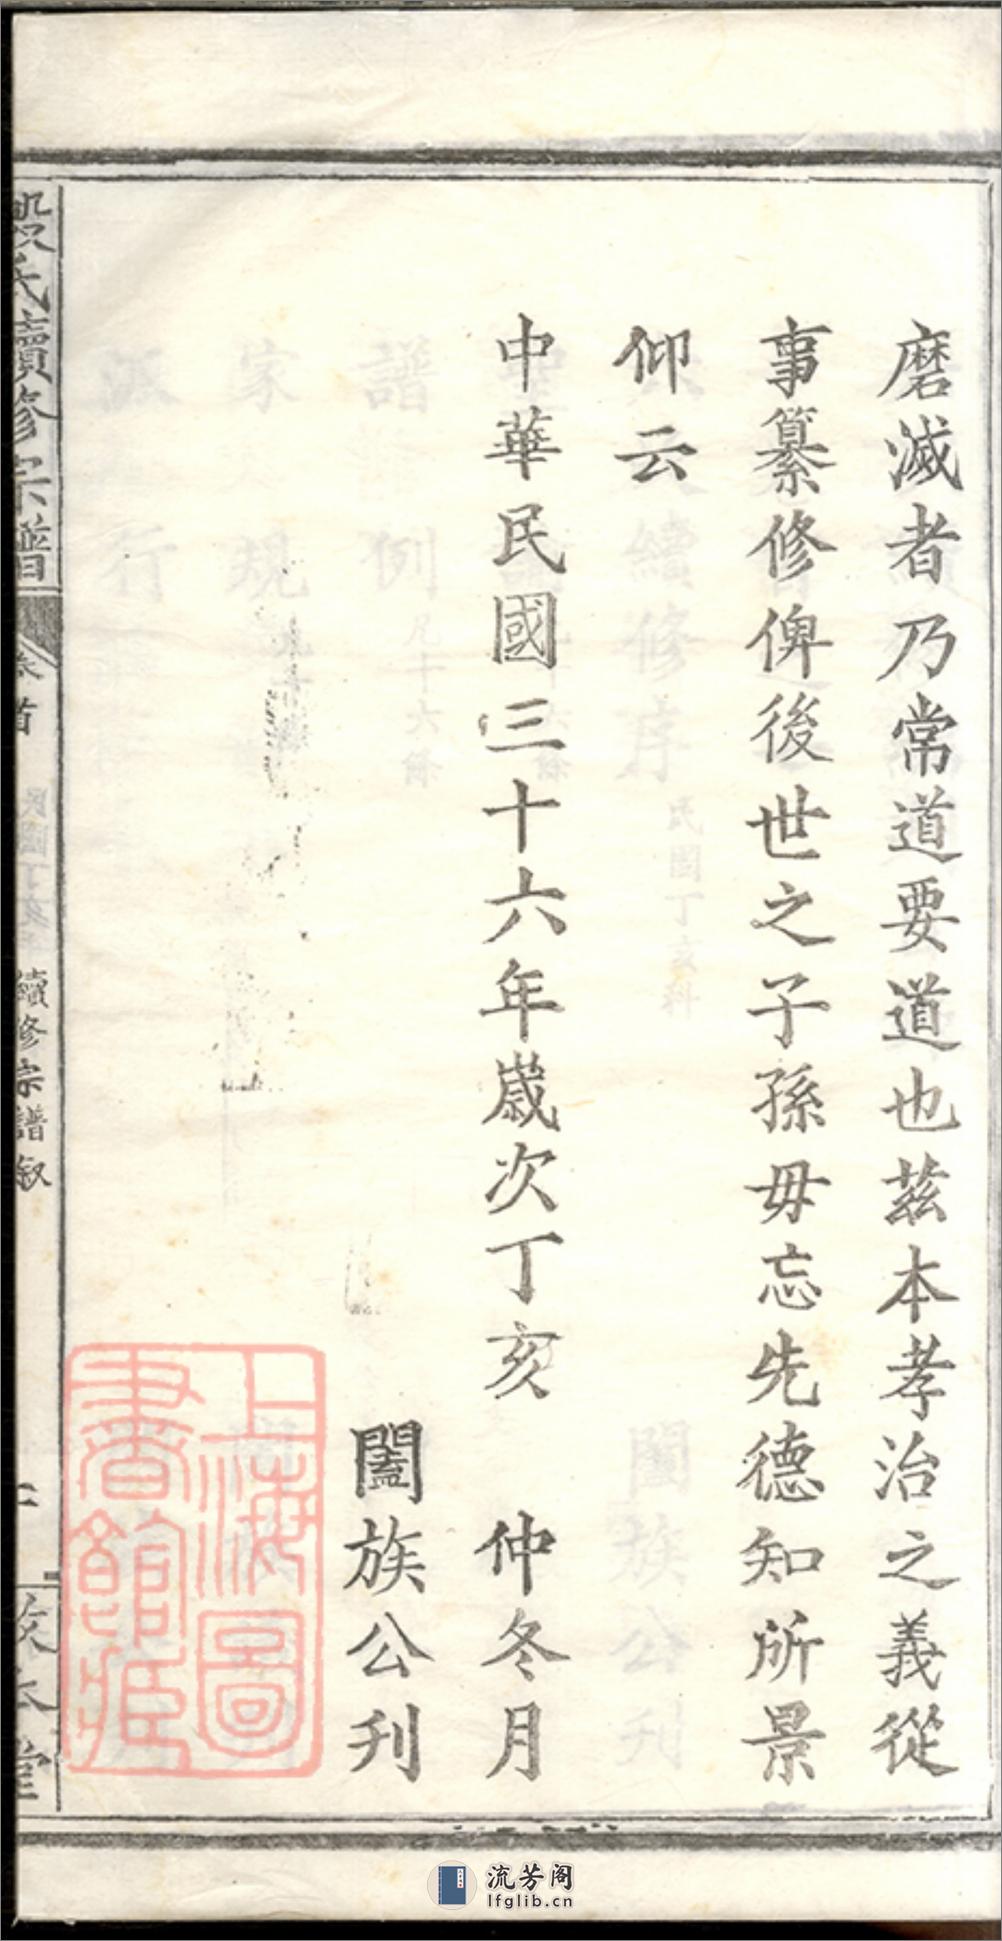 磨滅者乃常道要道也茲本孝治之義從
事纂修俾後世之子孫毋忘先德知所景
仰云
中華民國三十六年歲次丁亥 仲冬月
闔族公刊
氏續修宗譜
卷首
續修宗譜叙
二
本堂
上海圖書館藏
流芳阁
lfglib.cn